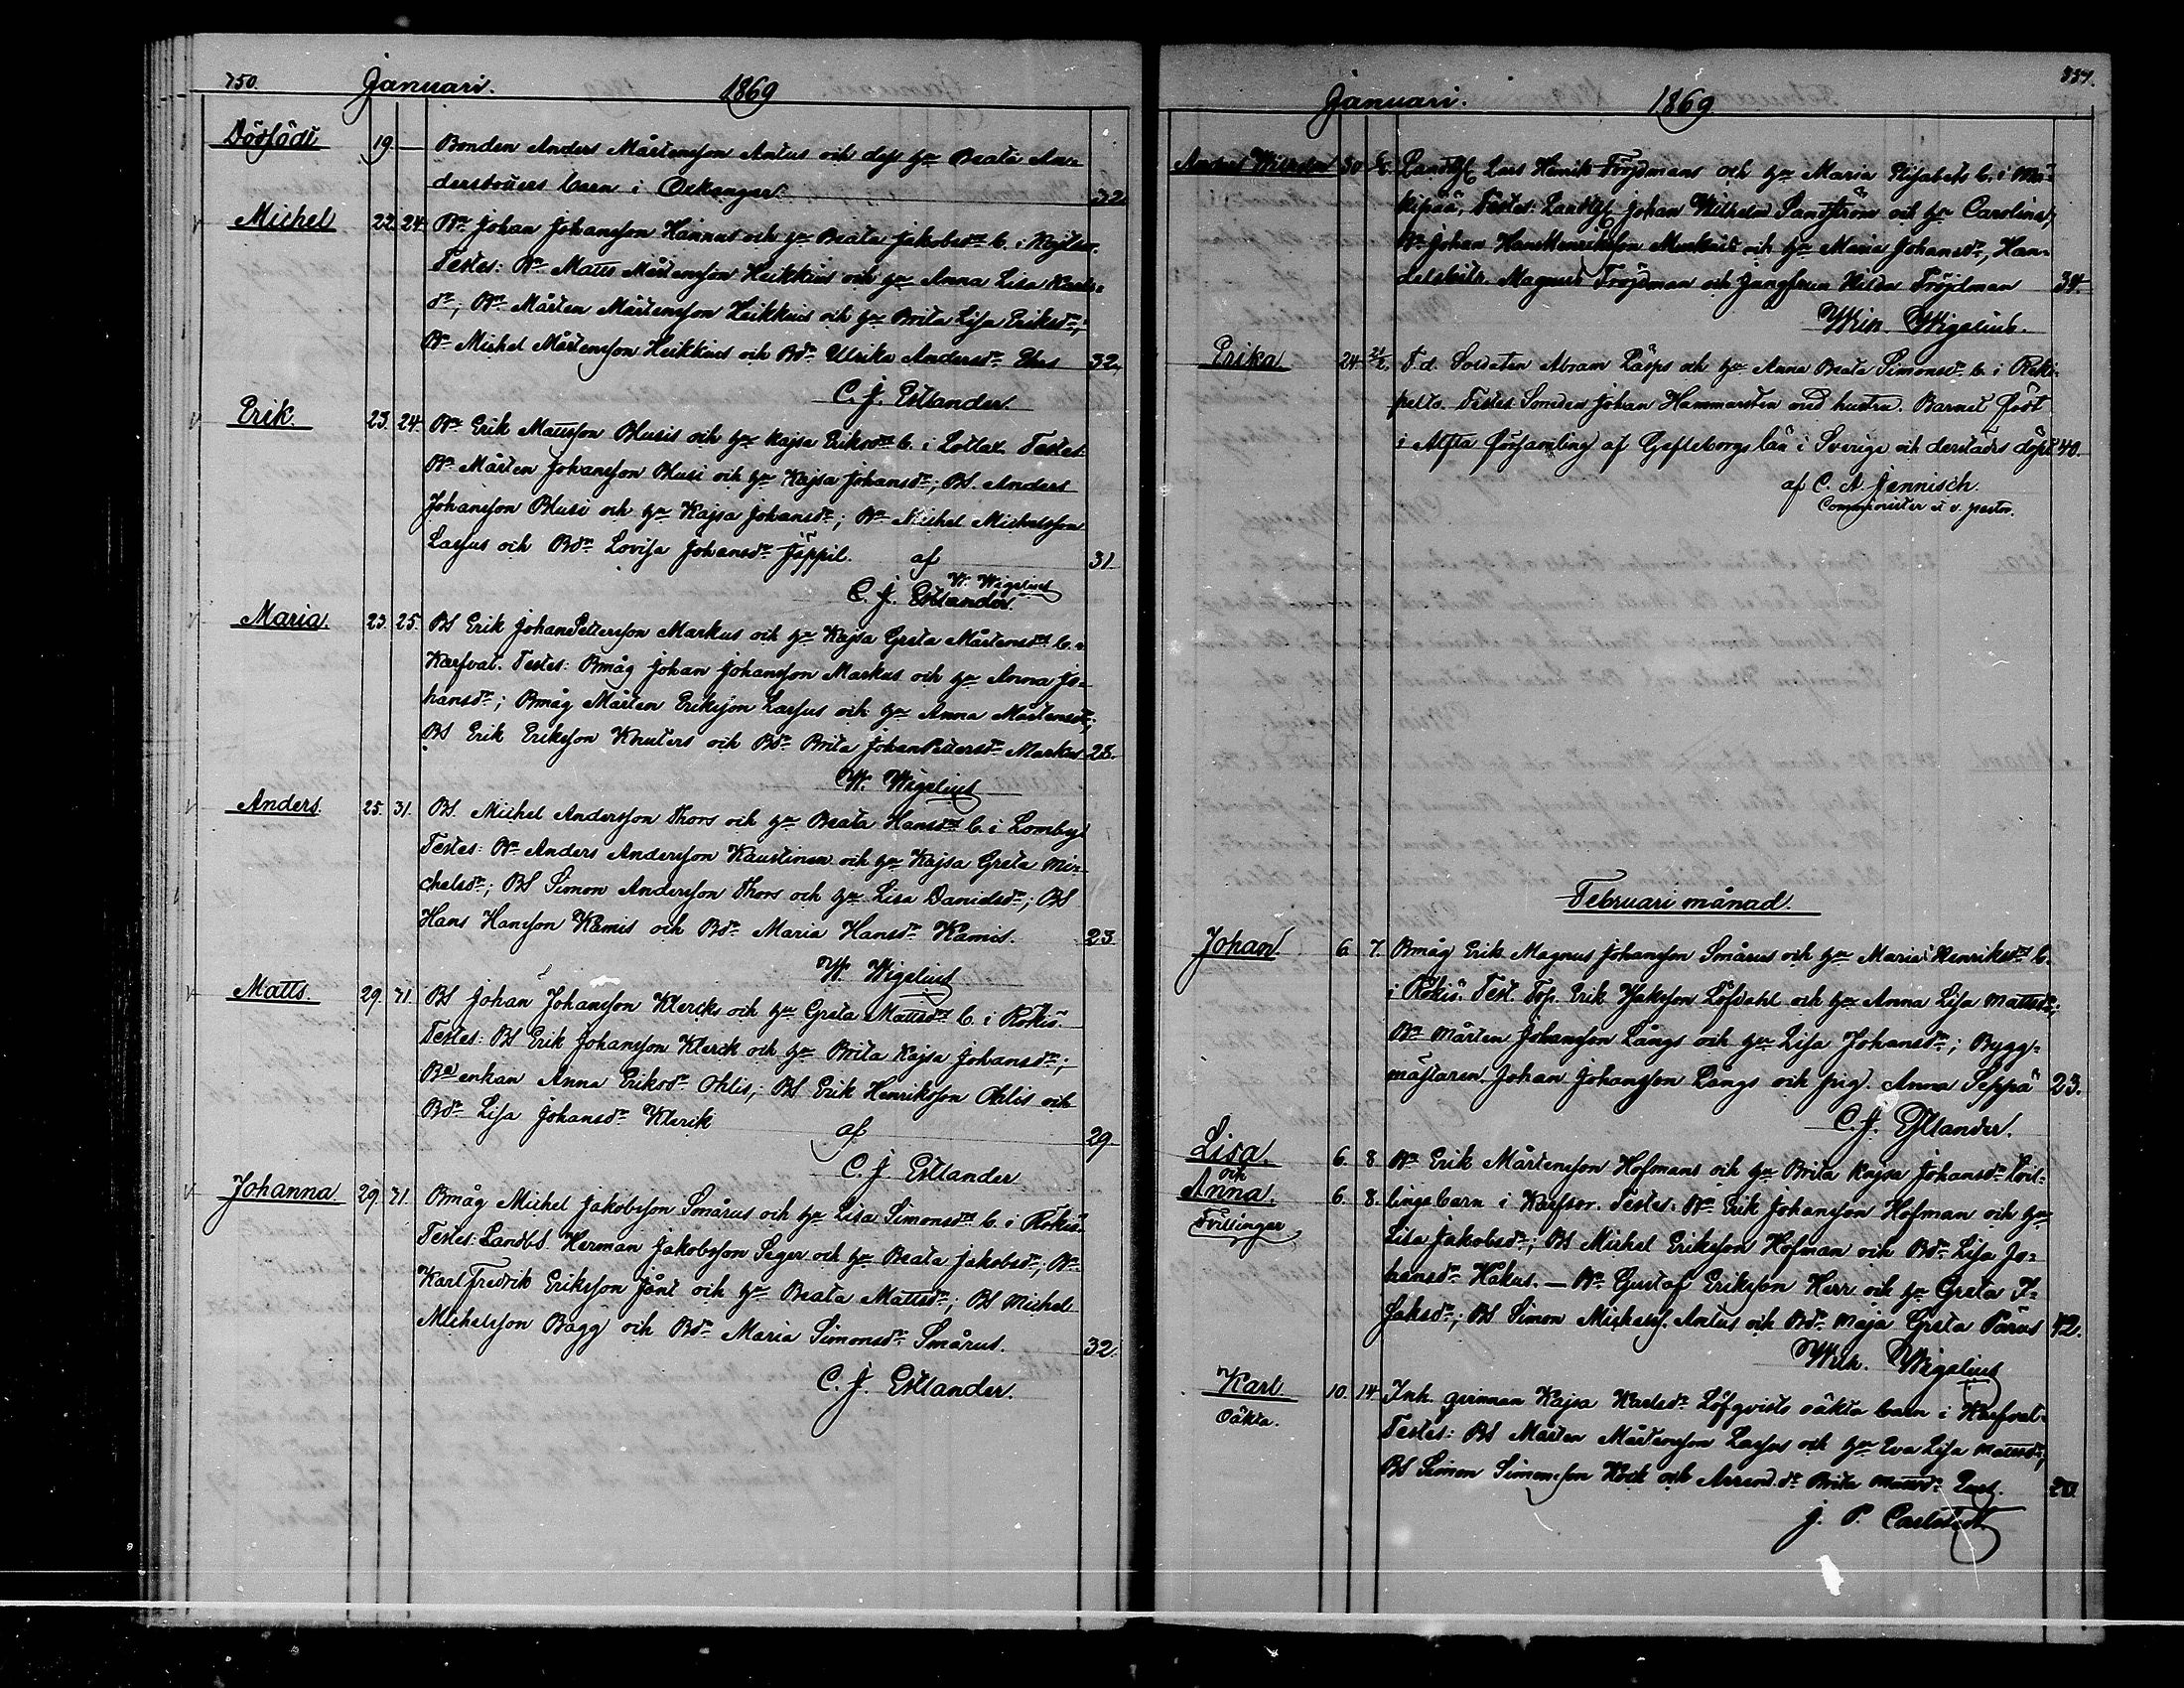 750. Januari. 1869
Dödfödt 19 — Bonden Anders Mårtensson Antus och dess hu Beata An-
dersdotters barn i Öskangar. 32
Michel 22. 24. Bn Johan Johansson Hannus och hu Beata Jakobsdrs b. i
Testes: Bn Matts Mårtensson Heikkius och hu Anna Lisa Karls-
dr; Bn Mårten Mårtensson Heikkius och hu Brita Lisa Eriksdr;
Bn Michel Mårtensson Heikkius och Bdr Ulrika Andersdr 32.
C. J. Estlander.
Erik. 23. 24. Bn Erik Mattsson Blusis och hu Kajsa Eriksdrs b. i Testes:
Bn Mårten Johansson Blusi och hu Kajsa Johansdr; BS. Anders
Johansson Blusi och hu Kajsa Johansdr; Bn Michel Michelsson
Lassus och Bdr Lovisa Johansdr Jäppil. af 31
W. Wigelius
C. J. Estlander.
Maria. 23. 25. BS Erik JohanPettersson Markus och hu Kajsa Greta Mårtensdrs b. i
Karfvat. Testes: Bmåg Johan Johansson Markus och hu Anna Jo-
hansdr; Bmåg Mårten Eriksson Lassus och hu Anna Mårtensdr;
BS Erik Eriksson Knuters och Bdr Brita JohanPettersdr Markus
W. Wigelius
Anders. 25. 31. BS. Michel Andersson Thors och hu Beata Hansdrs b. i Lomby.
Testes: Bn Anders Andersson Kaustinen och hu Kajsa Greta Mi-
chelsdr; BS Simon Andersson Thors och hu Lisa Danielsdr; BS
Hans Hansson Kamis och Bdr Maria Hansdr Kamis. 23
W. Wigelius
Matts. 29. 31. BS Johan Johansson Klercks och hu Greta Mattsdrs b. i Rökiö.
Testes: BS Erik Johansson Klerck och hu Brita Kajsa Johansdr;
Bdeenkan Anna Eriksdr Ohlis; BS Erik Henriksson Ohlis och
Bdr Lisa Johansdr Klerck af 29.
C. J. Estlander
Johanna 29. 31. Bmåg Michel Jakobsson Smårus och hu Lisa Simonsdrs b. i Rökiö.
Testes: LandbS. Herman Jakobsson Seger och hu Beata Jakobsdr; Bn
Karl Fredrik Eriksson Jånt och hu Beata Mattsdr; BS Michel
Michelsson Bagg och Bdr Maria Simonsdr Smårus. 32.
C. J. Estlander.
Januari. 1869.
Anders Wilhelm 30 Lars Henrik Fröjdmans och hu Maria Elisabets b. i Wä-
kipää, Testes: Johan Wilhelm Sandström och hu Carolina;
Bn Johan HansHenriksson och hu Maria Johansdr, Han-
delsbitr. Magnus Fröjdman och Jungfrun Hilda Fröjdman 34.
Wilh. Wigelius.
Erika 24 21/2. F.d. Soldaten Abram Räsps och hu Anna Beata Simonsdr b. i Reki-
pelto. Testes Smeden Johan Hammarsten med hustru. Barnet född
i Alfta församling af Gefleborgs län i Sverige och derstädes döpt 40.
af C. A. Jennisch.
Comminister et v. pastor.
Februari månad.
Johan. 6. 7. Bmåg Erik Magnus Johansson Smårus och hu Maria Henriksdrs b.
i Rökiö. Test. Erik Isaksson Löfdahl och hu Anna Lisa Mattsdr;
Bn Mårten Johansson Långs och hu Lisa Johansdr; Bygg-
mästaren Johan Johansson Långs och pig. Anna Seppä 23.
C. J. Estlander.
Lisa. 6. 8. Bn Erik Mårtensson Hofmans och hu Brita Kajsa Johansdr tvil-
och
Anna. 6. 8. linge barn i Karfsor. Testes: Bn Erik Johansson Hofman och hu
Tvillingar
Lisa Jakobsdr; BS Michel Eriksson Hofman och Bdr Lisa Jo-
hansdr Hakus. — Bn Gustaf Eriksson Herr och hu Greta I-
saksdr; BS Simon Michelss. Antus och Bdr Maja Greta Pärus 42.
Wilh. Wigelius
Karl 10. 14. Inh. qvinnan Kajsa Karlsdr Löfqvists oäkta barn i Karfvat.
Oäkta.
Testes: BS Mårten Mårtensson Lassus och hu Eva Lisa Mattsdr;
BS Simon Simonsson Kock och Arrend.dr Brita Mattsdr
J. P. Carlstedt